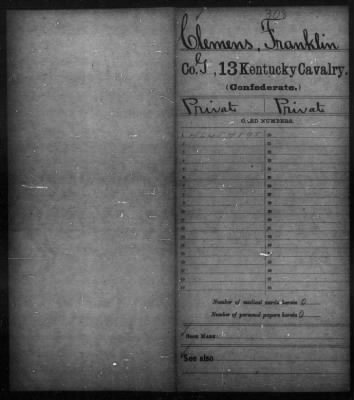 Clemens, Franklin
Co. G, 13 Kentucky Cavalry.
(Confederate.)
Private Private
CARD NUMBERS.
Number of medical cards herein 0
Number of personal papers herein 0
BOOK MARK:
See also